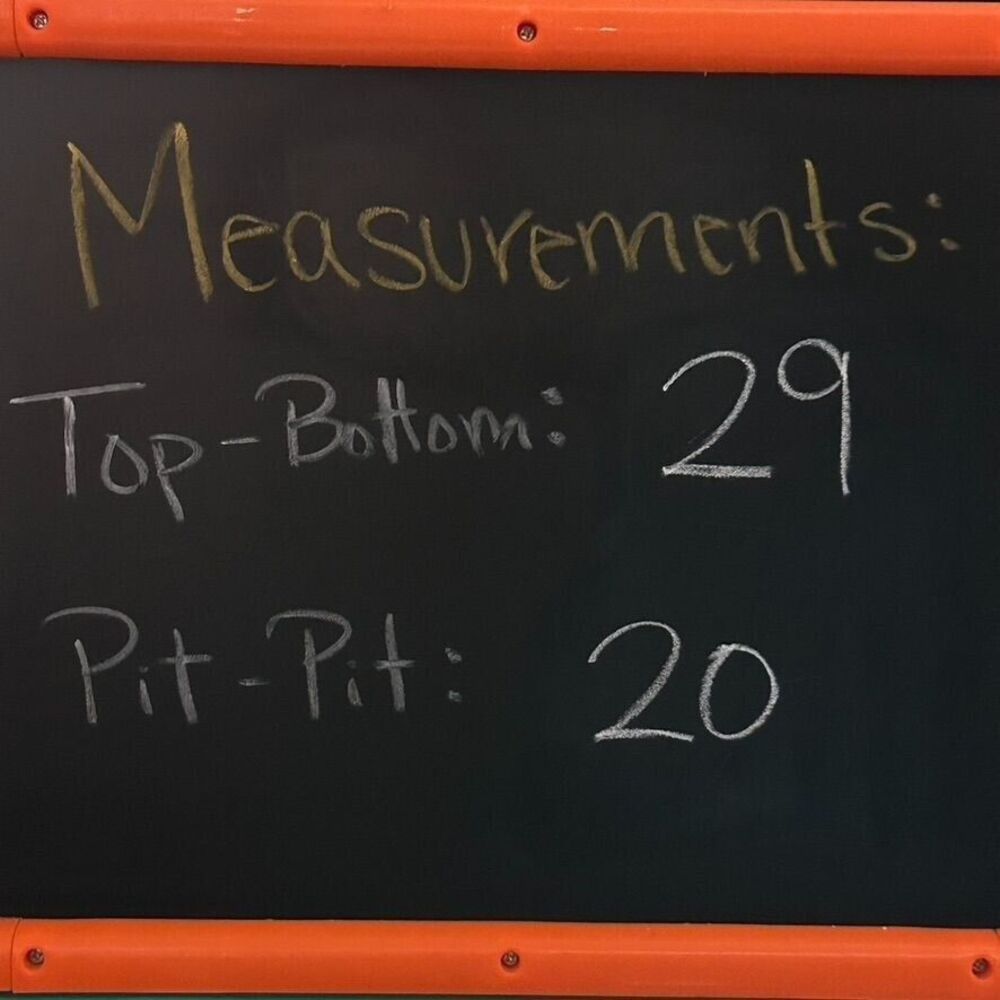 Measurements:
Top-Bottom: 29
Pit-Pit: 20